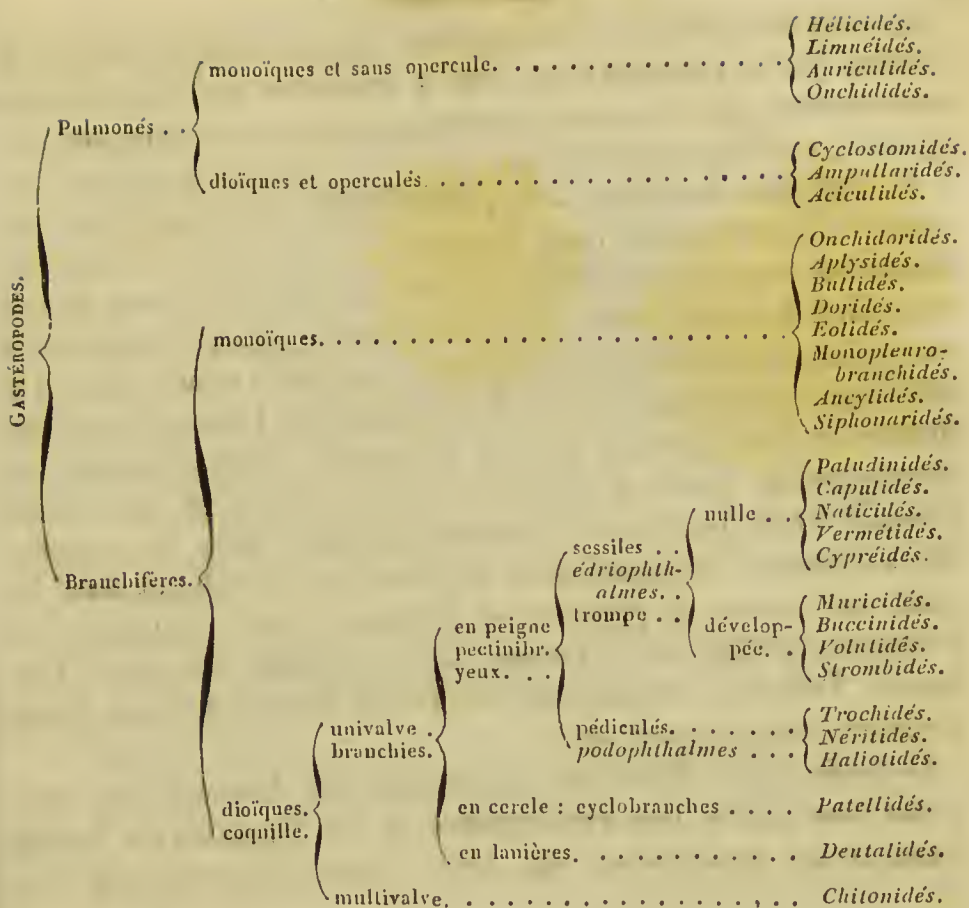 GASTÉROPODES.
Pulmonés . .
monoïques et sans opercule. . . . . . . . . . . . . . . .
Hélicidés.
Limnéidés.
Auriculidés.
Onchididés.
dioïques et operculés. . . . . . . . . . . . . . . . . . . .
Cyclostomidés.
Ampullaridés.
Aciculidés.
Branchifères.
monoïques. . . . . . . . . . . . . . . . . . . . . . . . . .
Onchidoridés.
Aplysidés.
Bullidés.
Doridés.
Eolidés.
Monopleuro-
branchidés.
Ancylidés.
Siphonaridés.
dioïques.
coquille.
univalve .
branchies.
en peigne
pectinibr.
yeux. . .
sessiles . .
édriophth-
almes. . .
trompe . .
nulle . .
Paludinidés.
Capulidés.
Naticidés.
Vermétidés.
Cypréidés.
dévelop-
pée. .
Muricidés.
Buccinidés.
Volutidés.
Strombidés.
pédiculés. . . . . . .
podophthalmes . . .
Trochidés.
Néritidés.
Haliotidés.
en cercle : cyclobranches . . . .
Patellidés.
en lanières. . . . . . . . . . . .
Dentalidés.
multivalve. . . . . . . . . . . . . . , . .
Chitonidés.